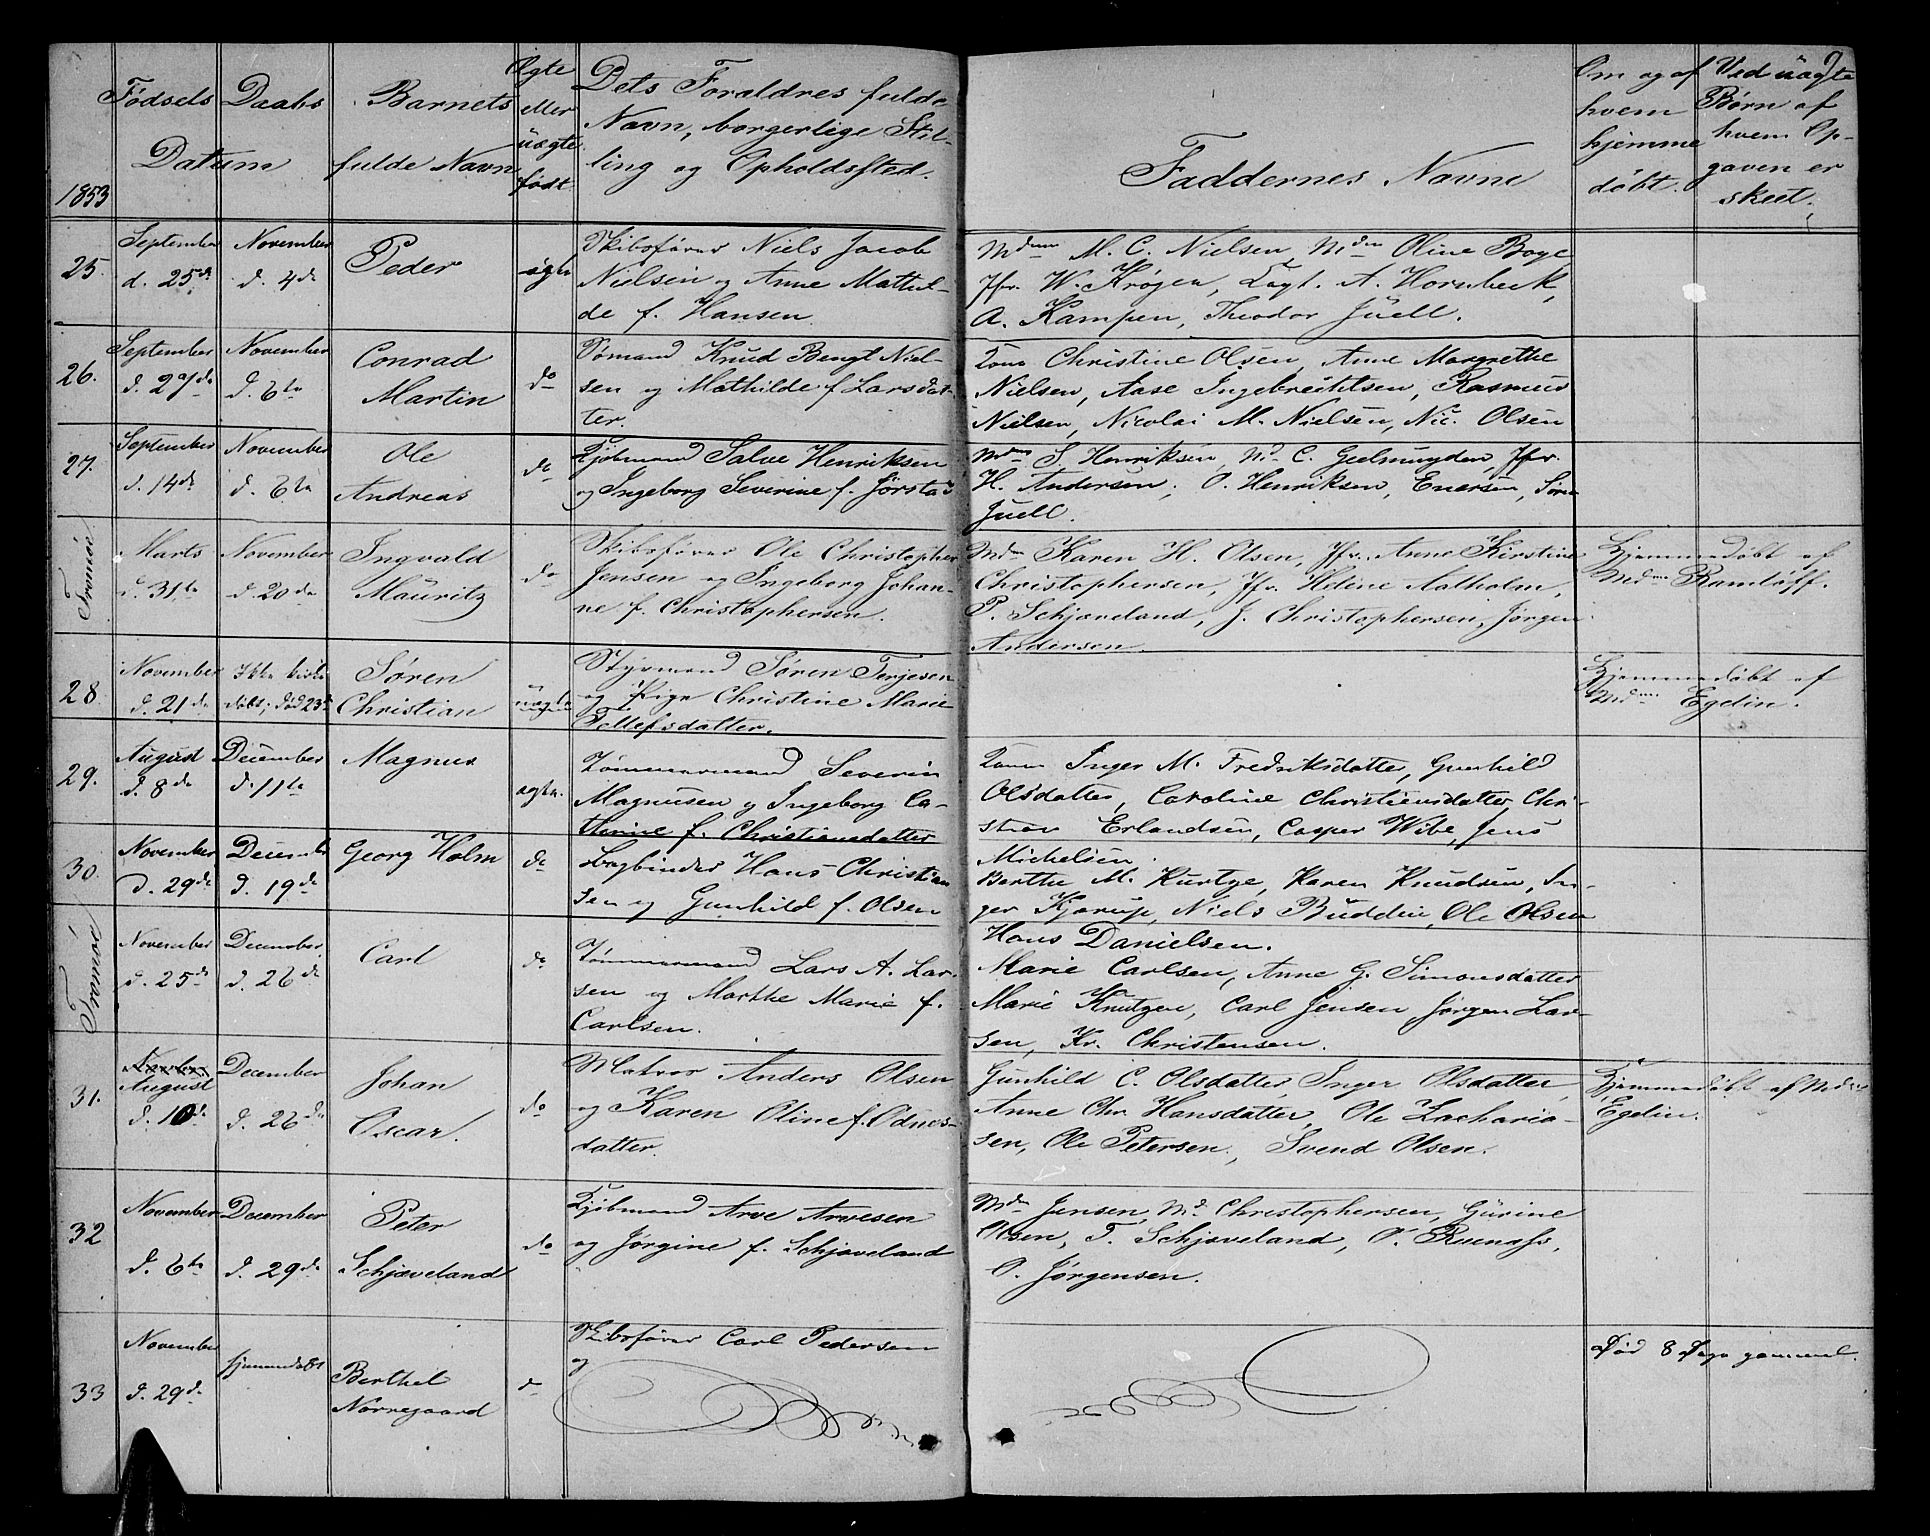 9
1853
Fødsels Daabs
Datum
Barnets
fulde Navn
Ægte
eller
uægte
født
Dets Forældres fulde
Navn, borgerlige Stil-
ling og Opholdssted.
Faddernes Navne
Om og af
hvem
hjemme
døbt.
Ved uægte
Børn af
hvem Op-
gaven er
skeet.
25.
September
d. 25de
November
d. 4de
Peder
ægte
Skibsfører Niels Jacob
Nielsen og Anne Mathil-
de f. Hansen
Mdm M. C. Nielsen, Mdm Oline Boye
Jfr. W. Krøger, A. Hornbech,
A. Kampen, Theodor Juell.
26.
September
d. 27de
November
d. 6te
Conrad
Martin
do
Sømand Knud Bengt Niel-
sen og Mathilde f. Larsdat-
ter.
Kone Christine Olsen, Anne Margrethe
Nielsen, Aase Ingebrechtsen, Rasmus
Nielsen, Nicolai M. Nielsen, Nic. Olsen
27.
September
d. 14de
November
d. 6te
Ole
Andreas
do
Kjøbmand Salve Henriksen
og Ingeborg Severine f. Jørstad
Mdm S. Henriksen, Md. C. Geelmuyden, Jfr.
H. Andersen, O. Henriksen, Enersen, Sørn
Juell.
Tromøe
Marts
d. 31te
November
d. 20de
Ingvald
Mauritz
do
Skibsfører Ole Christopher
Jensen og Ingeborg Johan-
ne f. Christophersen.
Mdm Karen H. Olsen, Jfr. Anne Kirstine
Christophersen, Jfr. Helene Aalholm,
P. Schjæveland, J. Christophersen, Jørgen
Andersen.
Hjemmedøbt af
Mdme Ramløff.
28.
November
d. 21de
Ikke kirke
døbt; død 23de
Søren
Christian
uægte
Styrmand Søren Terjesen
og Pige Christine Marie
Tellefsdatter.
Hjemmedøbt af
Mdme Egelin.
29.
August
d. 8de
December
d. 11te
Magnus
ægte.
Tømmermand Severin
Magnusen og Ingeborg Ca-
thrine f. Christiansdatter
Kone Inger M. Fredriksdatter, Gunhild
Olsdatter, Caroline Christiensdatter, Chri-
stian Erlandsen, Casper Wibe, Jens
Michelsen.
30.
November
d. 29de
December
d. 19de
Georg Holm
do
Bogbinder Hans Christian
sen og Gunhild f. Olsen
Berthe M. Kurtze, Karen Knudsen, In-
ger Kjørup, Niels Buddin, Ole Olsen
Hans Danielsen.
Tromøe
November
d. 25de
December
d. 26de
Carl
do
Tømmermand Lars A. Lar-
sen og Marthe Marie f.
Carlsen.
Marie Carlsen, Anne G. Simonsdatter
Marie Knutzen, Carl Jensen, Jørgen Lar-
sen, Kr. Christensen.
31.
August
d. 10de
December
d. 26de
Johan
Oscar.
do
Matros Anders Olsen
og Karen Oline f. Odnes-
datter.
Gunhild C. Olsdatter, Inger Olsdatter,
Anne Chr. Hansdatter, Ole Zacharia-
sen, Ole Petersen, Svend Olsen.
Hjemmedøbt af Mdme
Egelin.
32
November
d. 6te
December
d. 29de
Peter
Schjæveland
do
Kjøbmand Arve Arvesen
og Jørgine f. Schjæveland
Mdm Jensen, Md. Christophersen, Gurine
Olsen, T. Schjæveland, O.
O. Jørgensen.
33
November
d. 29de
hjemmedøbt
Berthel
Nørregaard
do
Skibsfører Carl Pedersen
og
Død 8 Dage gammel.